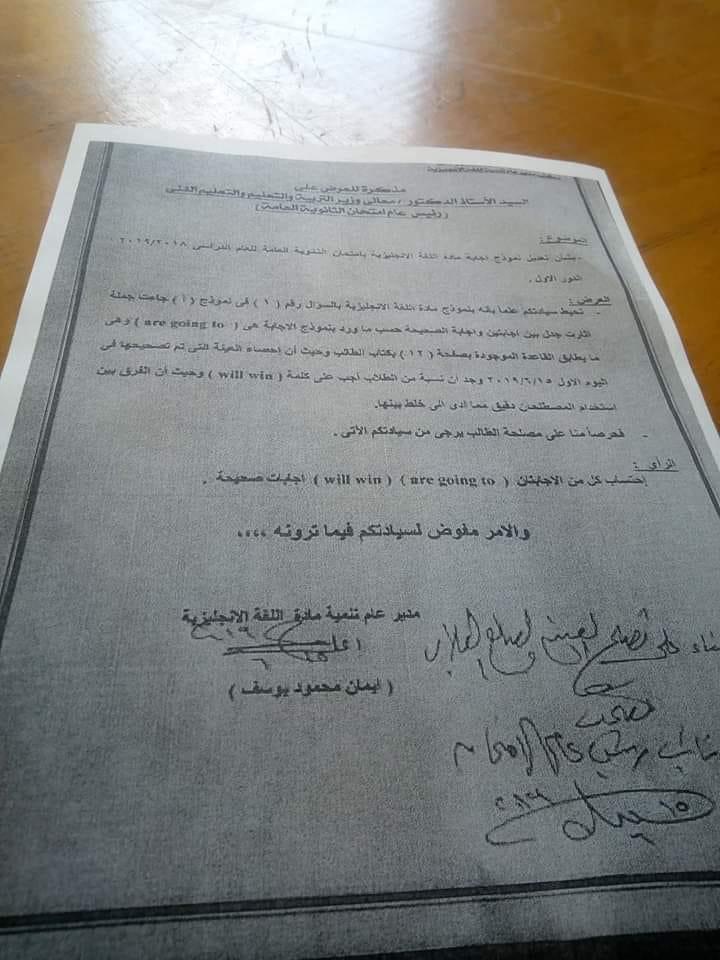 مذكرة للعرض على
السيد الأستاذ الدكتور / معالى وزير التربية والتعليم والتعليم الفنى
( رئيس عام امتحان الثانوية العامة )
الموضوع :
بشأن تعديل نموذج اجابة مادة اللغة الانجليزية بامتحان الثانوية العامة للعام الدراسى ٢٠١٩/٢٠١٨
الدور الاول .
العرض :
- نحيط سيادتكم علما بانه بنموذج مادة اللغة الانجليزية بالسوال رقم ( ١ ) فى نموذج ( أ ) جاءت جملة
اثارت جدل بين اجابتين واجابة الصحيحة حسب ما ورد بنموذج الاجابة هى ( are going to ) وهى
ما يطابق القاعدة الموجودة بصفحة ( ١٢ ) بكتاب الطالب وحيث أن إحصاء العينة التى تم تصحيحها فى
اليوم الاول ٢٠١٩/٦/١٥ وجد ان نسبة من الطلاب أجب على كلمة ( will win ) وحيث أن الفرق بين
استخدام المصطلحان دقيق مما أدى الى خلط بينها.
- فحرصاً منا على مصلحة الطالب يرجى من سيادتكم الآتى .
الرأى :
إحتساب كل من الاجابتان ( are going to ) ( will win ) اجابات صحيحة .
والامر مفوض لسيادتكم فيما ترونه ،،،،
مدير عام تنمية مادة اللغة الانجليزية
( ايمان محمود يوسف )